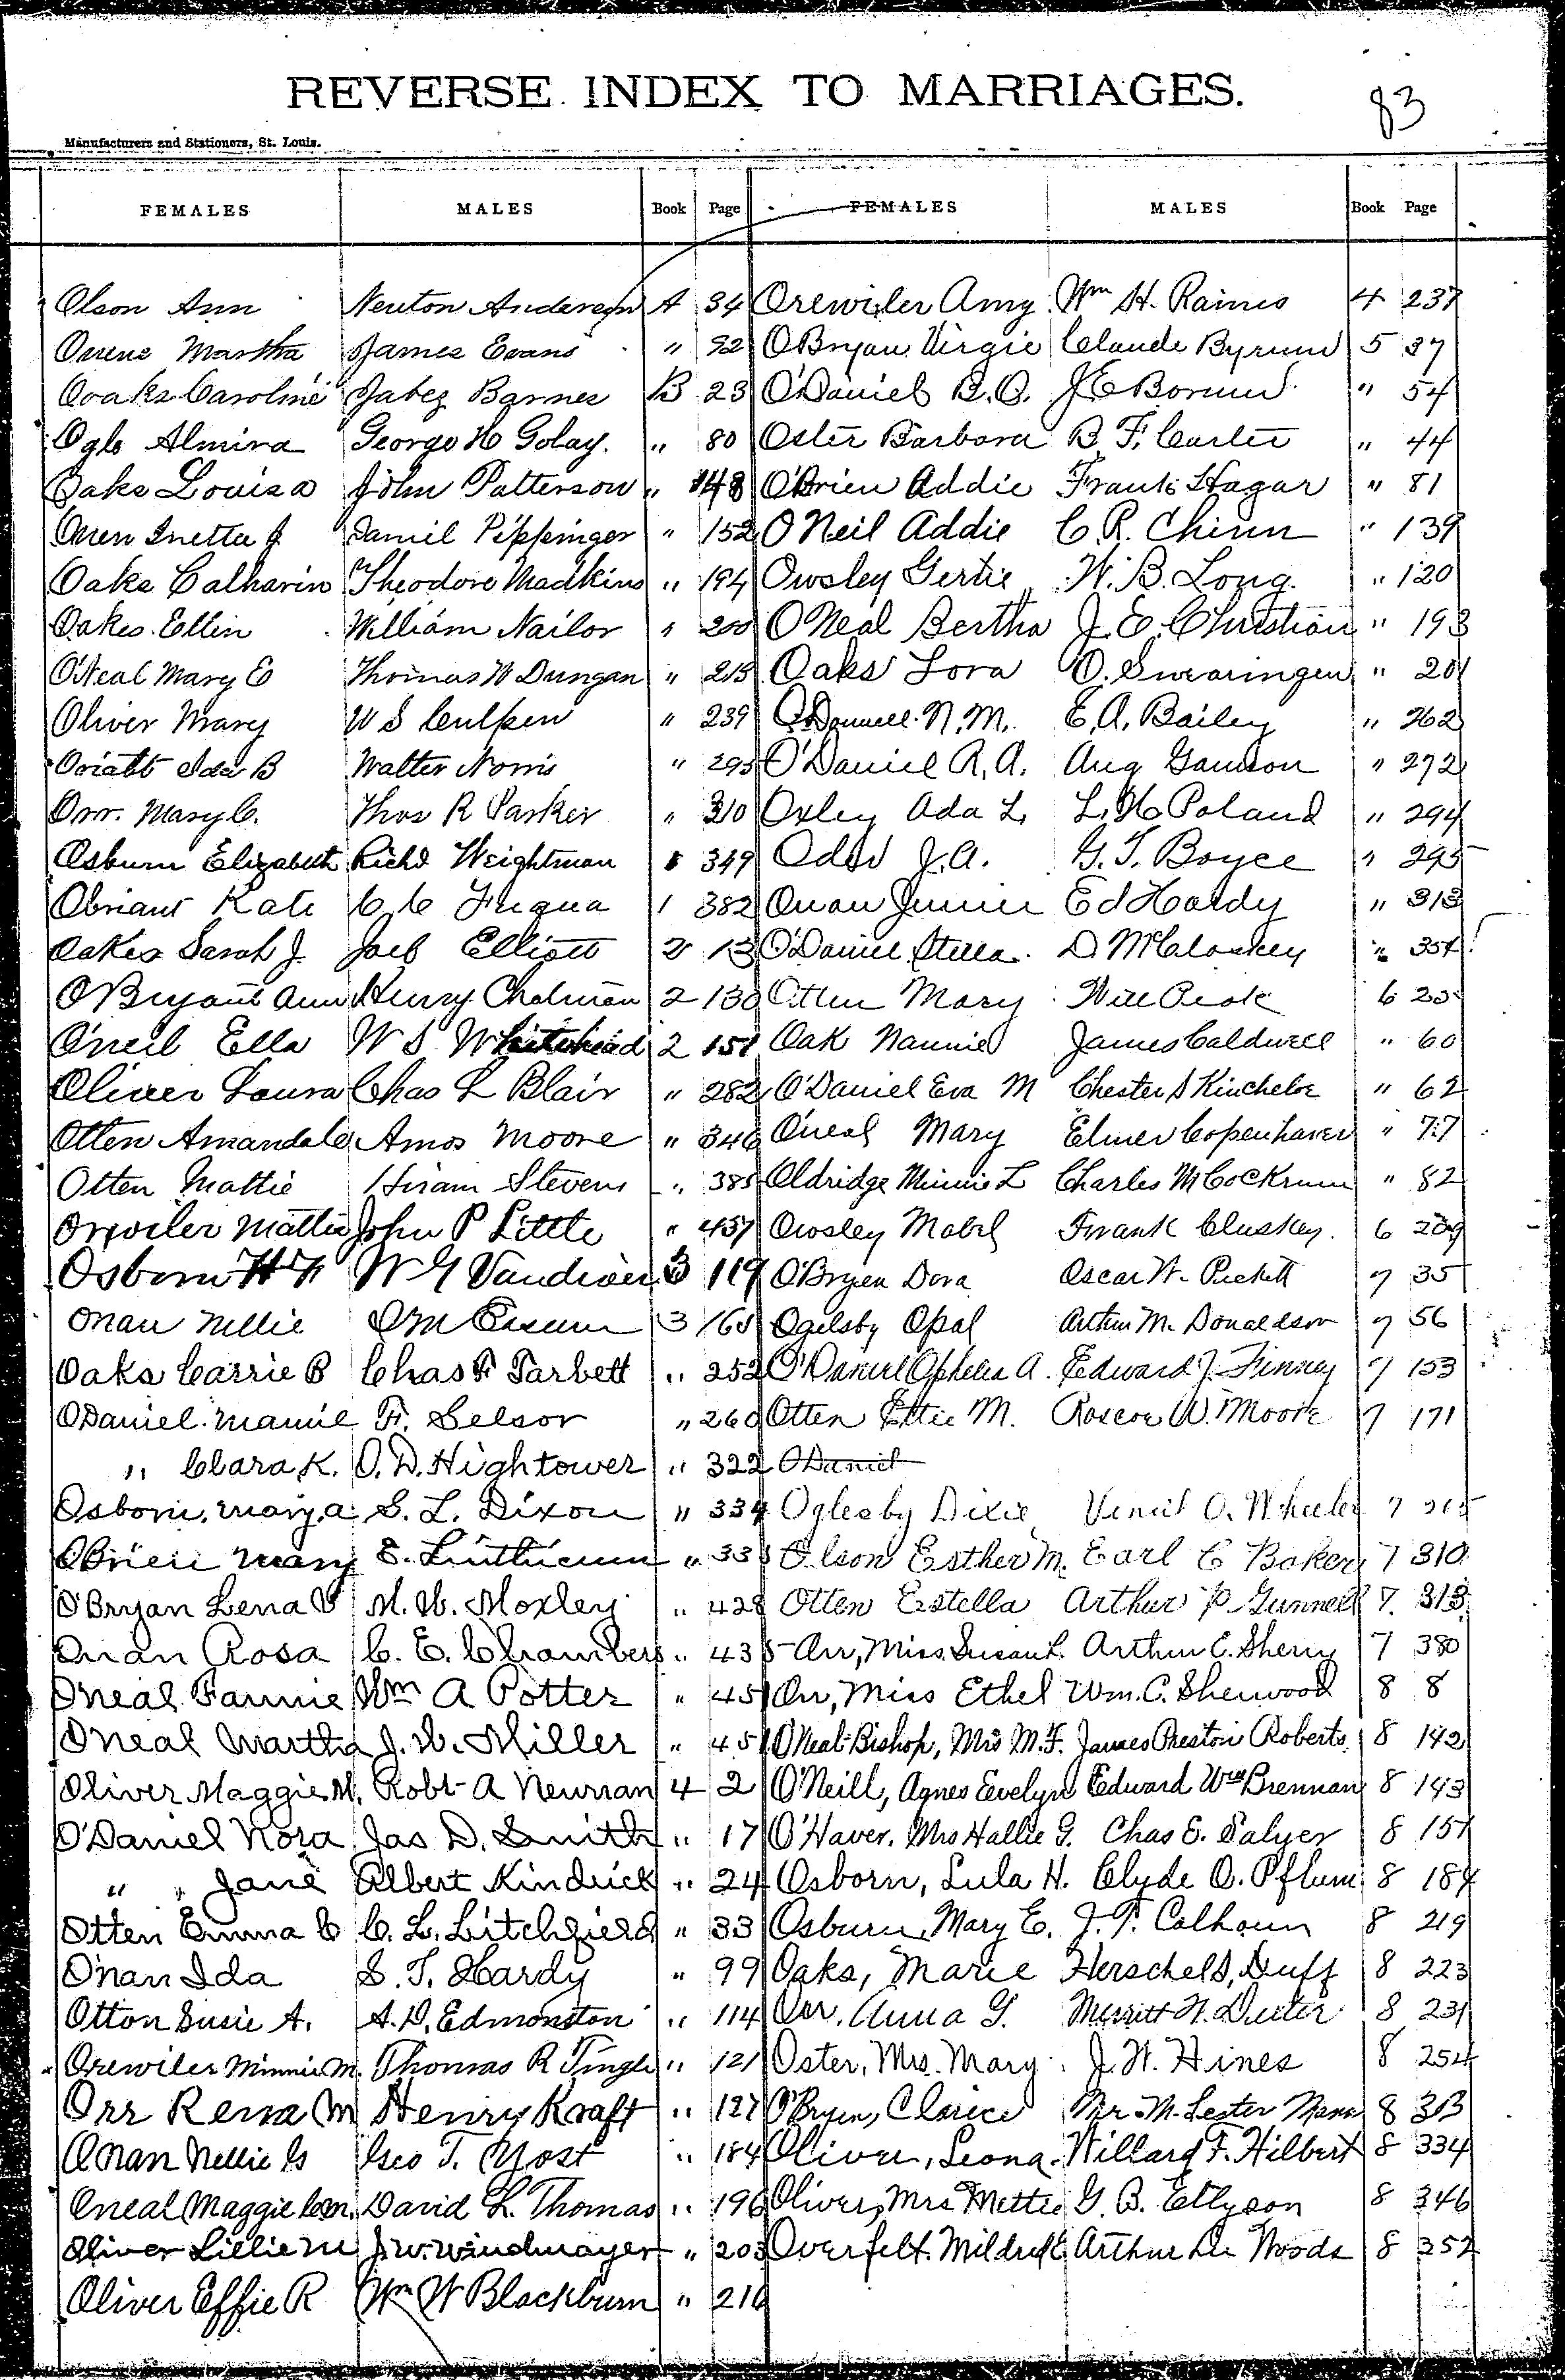 REVERSE INDEX TO MARRIAGES.
83
Manufacturers and Stationers, St. Louis.
FEMALES MALES Book Page FEMALES MALES Book Page
Olson Ann Newton Anderson A 34 Orewiler Amy Wm H. Raines 4 237
Owens Martha James Evans " 92 OBryan Virgie Claude Byrum 5 37
Ooaks Caroline Jabez Barnes B 23 O'Daniel B.O. J E Borum " 54
Ogle Almira George H Golay. " 80 Oster Barbara B. F. Carter " 44
Oaks Louisa John Patterson " 148 O'Brien Addie Frank Hagar " 81
Owen Inetta J Daniel Pippinger " 152 O Neil Addie C. R. Chinn " 139
Oaks Catharin Theodore Madkins " 194 Owsley Gertie W. B. Long. " 120
Oakes Ellin William Nailor " 200 O Neal Bertha J. E. Christian " 193
O'Neal Mary E Thomas W Dungan " 213 Oaks Lora O. Swearingen " 201
Oliver Mary W S Culpen " 239 O'Donnell N. M. E. A. Bailey " 262
Oviatt Ida B Walter Norris " 295 O'Daniel R. A. Aug Gamson " 272
Orr. Mary C. Thos R Parker " 310 Oxley Ada L. L. H Poland " 294
Osburn Elizabeth Richd Weightman " 349 J. A. G. T. Boyce " 295
Obriant Kate C C Fuqua 1 382 Onan Jennie Ed Hardy " 313
Oakes Sarah J. Joel Elliott 2 13 O'Daniel Stella D McCloskey " 354
O Bryant Ann Henry Chatman 2 130 Otten Mary Will Peak 6 25
O'neil Ella W S Whitehead 2 151 Oak Nannie James Caldwell " 60
Oliver Laura Chas L Blair " 282 O'Daniel Eva M Chester S Kincheloe " 62
Otten Amanda Amos Moore " 346 O'neal Mary Elmer Copenhaver " 77
Otten Mattie Hiram Stevens " 385 Oldridge Minnie L Charles M Cockrum " 82
Orewiler Mattie John P Little " 437 Owsley Mabel Frank Cluskey. 6 209
Osborn H F W G Vandiver 3 119 O'Bryen Dora Oscar W. Puckett 7 35
Onan Nellie 3 165 Ogelsby Opal Arthur M. Donaldson 7 56
Oaks Carrie B Chas F Tarbett " 252 O'Daniel Ophelia A. Edward J. Finney 7 153
ODaniel Mamie F. Selsor " 260 Otten Ettie M. Roscoe W. Moore 7 171
" Clara K. O. D. Hightower " 322 O Daniel
Osborn, Mary, A. S. L. Dixon " 334 Oglesby Dixie Vencil O. Wheeler 7 265
OBrien Mary E. Linthicum " 335 Olson Esther M. Earl C Baker 7 310
O'Bryan Lena V M. W. Moxley " 428 Otten Estella Arthur P Gunnell 7. 313
Onan Rosa C. E. Chambers " 435 Orr, Miss Susan L. Arthur C. Sherry 7 380
Oneal Fannie Wm A Potter " 451 Orr, Miss Ethel Wm. C. Sherwood 8 8
Oneal Martha J. W. Miller " 451 O'Neal-Bishop, Mrs M. F. James Preston Roberts 8 142
Oliver Maggie M. Robt A Newman 4 2 O'Neill, Agnes Evelyn Edward Wm Brennan 8 143
O'Daniel Nora Jas D. Smith " 17 O'Haver, Mrs Hallie G. Chas E. Salyer 8 151
" " Jane Albert Kindrick " 24 Osborn, Lula H. Clyde O. Pflum 8 184
Otten Emma C C. L. Litchfield " 33 Osburn, Mary E. J. F. Calhoun 8 219
O'nan Ida S. T. Hardy " 99 Oaks, Marie Herschel S. Duff 8 223
Otton Susie A. A. D. Edmonston " 114 Orr, Anna G. Merritt N. Dieter 8 231
Orewiler Minnie M. Thomas R Tingle " 121 Oster, Mrs. Mary J. W. Hines 8 254
Orr Rena M Henry Kraft " 127 O'Bryen, Clarice Mr. M. Lester Mann 8 313
Onan Nellie G Geo T. Yost " 184 Oliver, Leona Willard F. Hilbert 8 334
Oneal Maggie David L. Thomas " 196 Oliver, Mrs Mettie G. B. Ellyson 8 346
Oliver Lillie M J. W. Windmayer " 203 Overfelt Mildred E. Arthur Lee Woods 8 352
Oliver Effie R Wm W Blackburn " 216